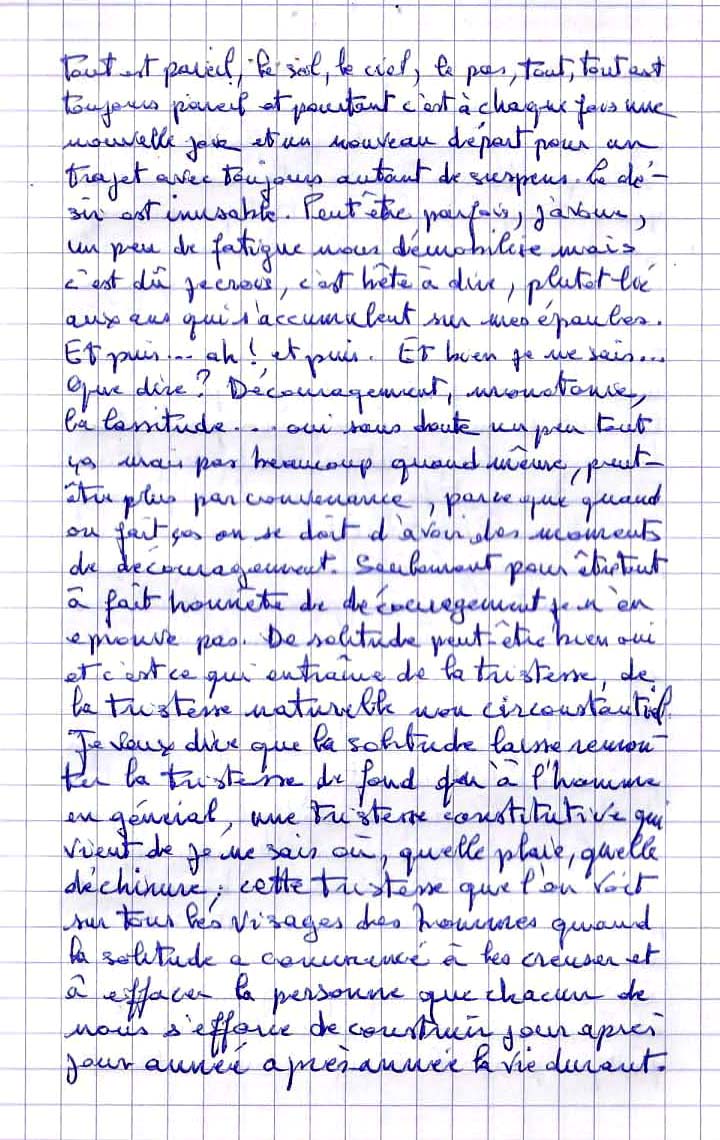 tout est pareil, le sol, le ciel, le pas, tout, tout est
toujours pareil et pourtant c'est à chaque fois une
nouvelle joie et un nouveau départ pour un
trajet avec toujours autant de suspens. Le dé-
sir est inusable. Peut être parfois, j'avoue,
un peu de fatigue nous démobilise mais
c'est dû je crois, c'est bête à dire, plutot lié
aux ans qui s'accumulent sur mes épaules.
Et puis... ah! et puis. Et bien je ne sais...
Que dire? Découragement, monotonie,
la lassitude... oui sans doute un peu tout
ça mais pas beaucoup quand même, peut-
être plus par convenance, parce que quand
on fait ça on se doit d'avoir des moments
de découragement. Seulement pour être tout
à fait honnête de découragement je n'en
eprouve pas. De solitude peut-être bien oui
et c'est ce qui entraîne de la tristesse, de
la tristesse naturelle non circonstantiel.
Je veux dire que la solitude laisse remon-
ter la tristesse de fond qu'à l'homme
en général, une tristesse constitutive qui
vient de je ne sais où, quelle plaie, quelle
déchirure; cette tristesse que l'on voit
sur tous les visages des hommes quand
la solitude a commencé à les creuser et
à effacer la personne que chacun de
nous s'efforce de construire jour après
jour année après année la vie durant.